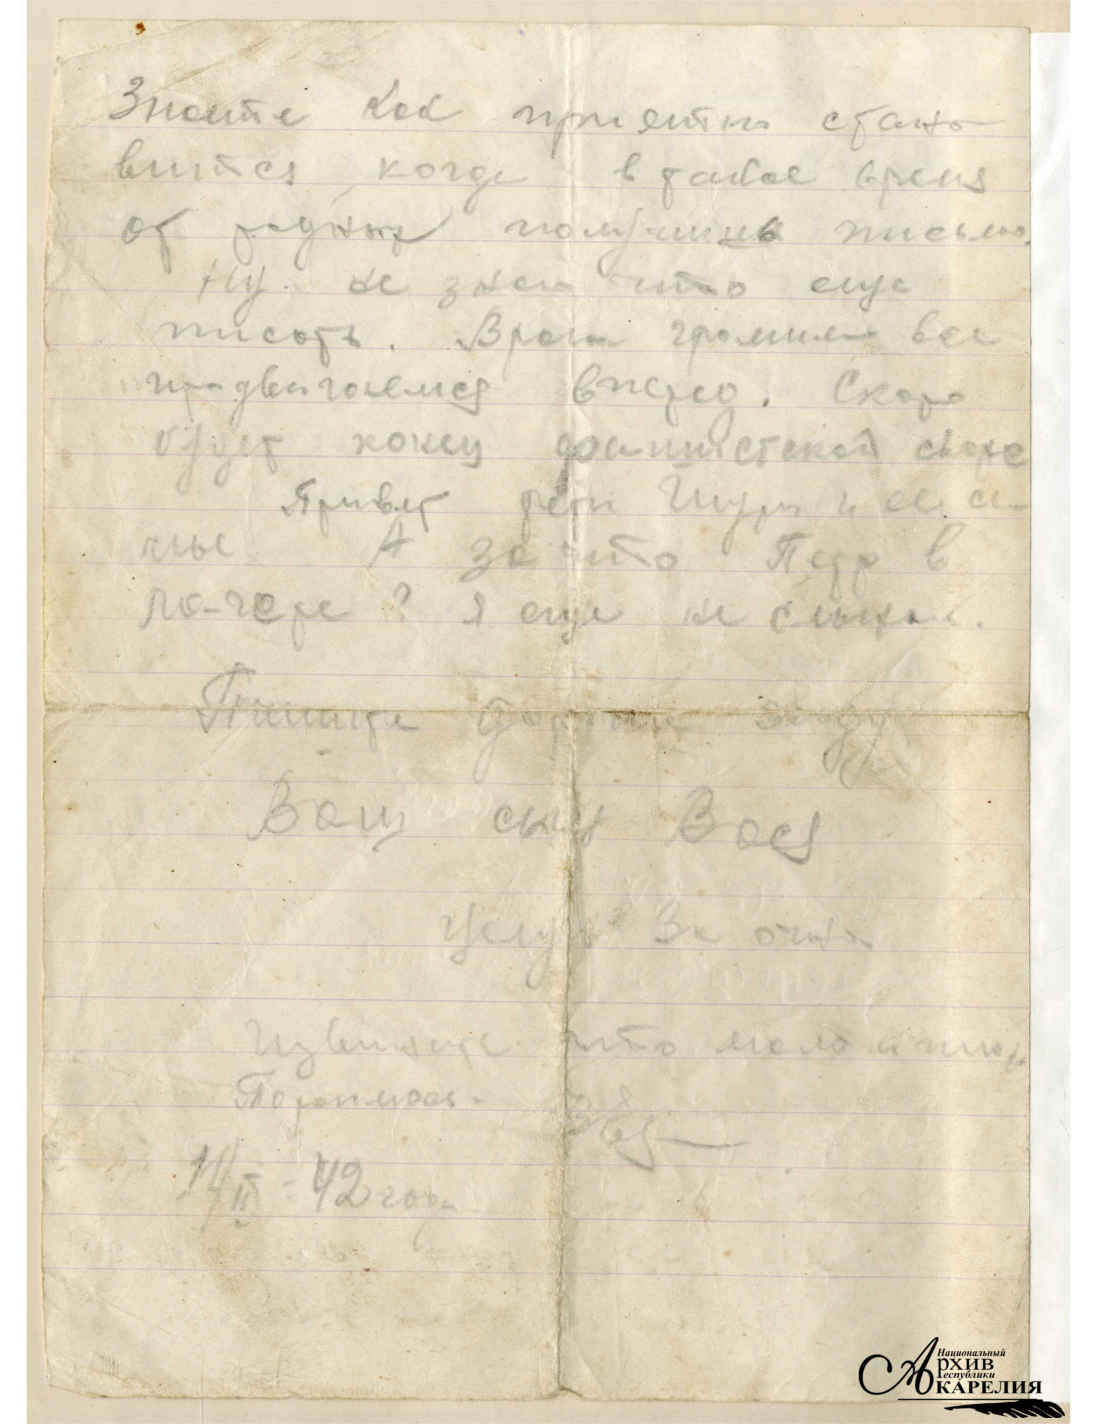 Знаете как приятно стано
вится когда в такое время
от родных получишь письмо.
Ну. не знаю что еще
писать. Врага громим все
продвигаемся вперед. Скоро
будет конец фашистской своре
Привет тети Шуры и ее
А за что Педр в
лагере? Я еще не слыхал.
Пишите
Ваш сын Вася
Целую За очно
Извините что мало
Торопился.
14/II - 42 года
Национальный
АРХИВ
Республики
КАРЕЛИЯ